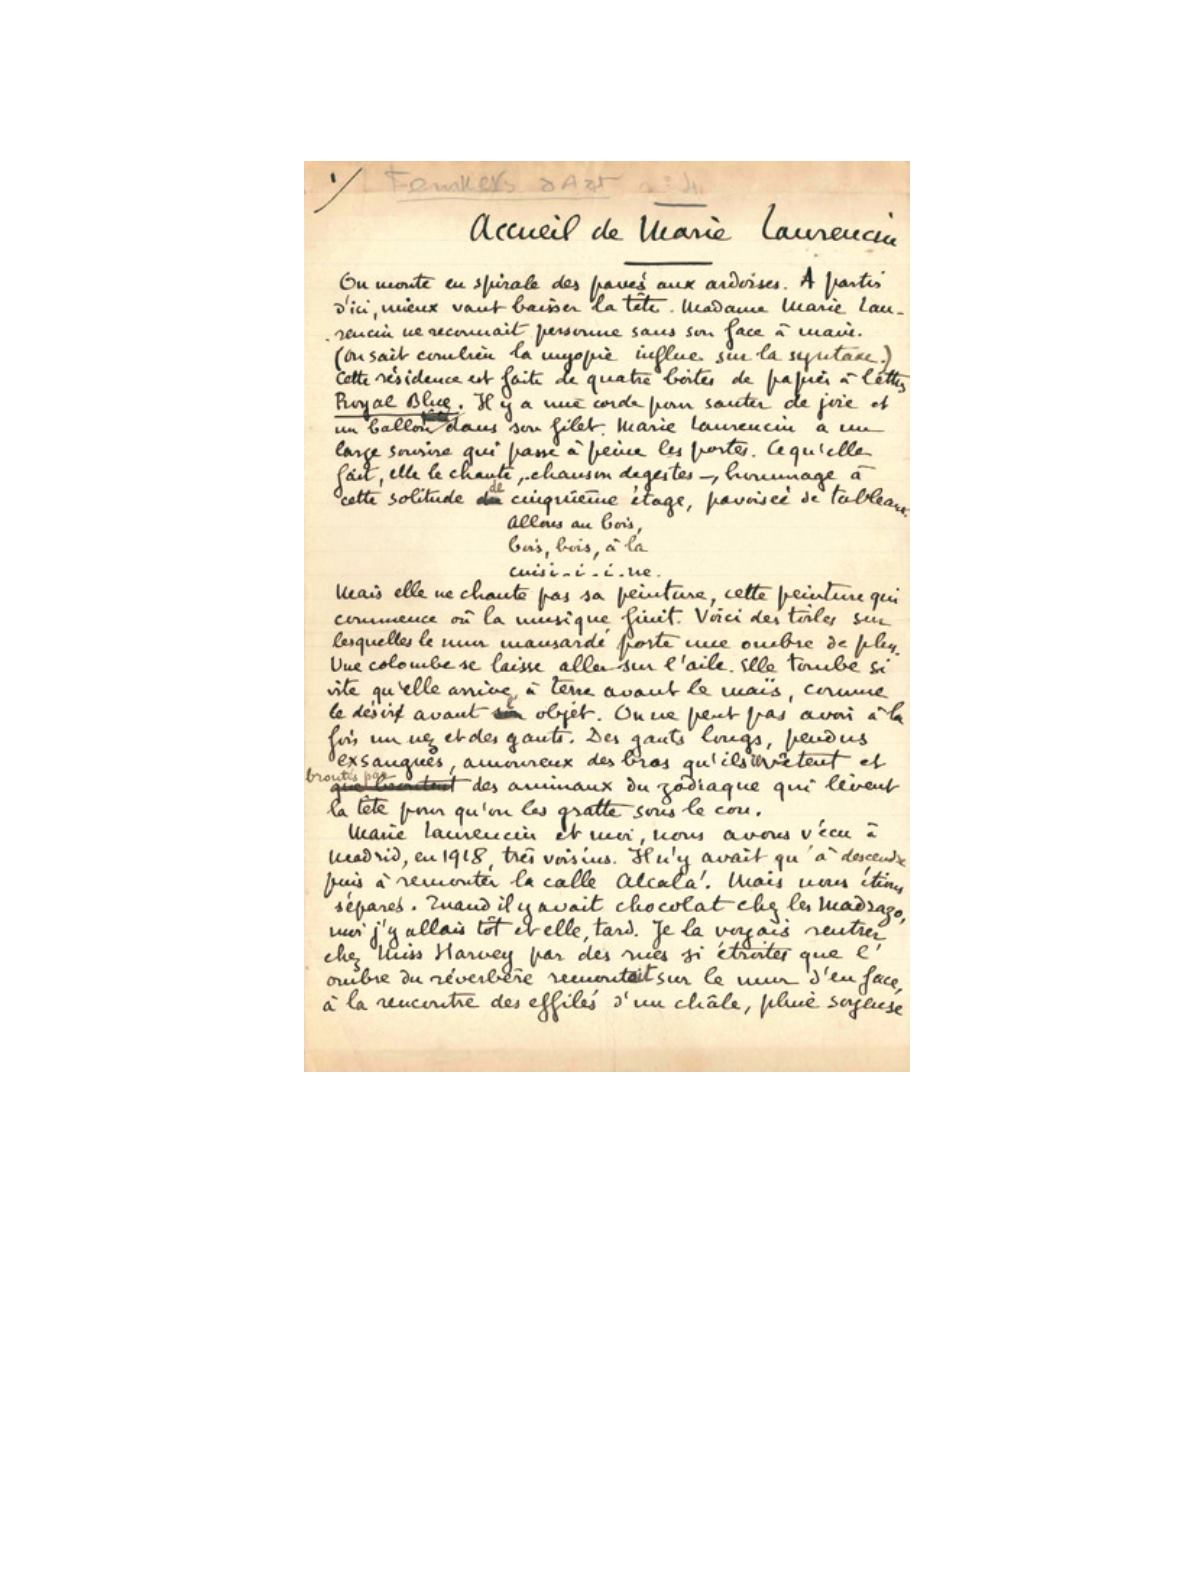 1/ Feuillets d'Art n: 4.
Accueil de Marie Laurencin
On monte en spirale des pavés aux ardoises. A partir
d'ici, mieux vaut baisser la tête. Madame Marie Lau-
rencin ne reconnait personne sans son face à main.
(On sait combien la myopie influe sur la syntaxe.)
Cette résidence est faite de quatre boîtes de papier à lettres
Royal Blue. Il y a une corde pour sauter de joie et
un ballon dans son filet. Marie Laurencin a un
large sourire qui passe à peine les portes. Ce qu'elle
fait, elle le chante, - chanson de gestes -, hommage à
cette solitude de cinquième étage, pavoisée de tableaux.
Allons au bois,
bois, bois, à la
cuisi-i-i-ne.
Mais elle ne chante pas sa peinture, cette peinture qui
commence où la musique finit. Voici des toiles sur
lesquelles le mur mansardé porte une ombre de plus.
Une colombe se laisse aller sur l'aile. Elle tombe si
vite qu'elle arrive à terre avant le maïs, comme
le désir avant l'objet. On ne peut pas avoir à la
fois un nez et des gants. Des gants longs, pendus
exsangues, amoureux des bras qu'ils vêtent et
broutés par
que broutent des animaux du zodiaque qui lèvent
la tête pour qu'on les gratte sous le cou.
Marie Laurencin et moi, nous avons vécu à
Madrid, en 1918, très voisins. Il n'y avait qu'à descendre
puis à remonter la calle Alcalá. Mais nous étions
séparés. Quand il y avait chocolat chez les Madrazo,
moi j'y allais tôt et elle, tard. Je la voyais rentrer
chez Miss Harvey par des rues si étroites que l'
ombre du réverbère remontait sur le mur d'en face,
à la rencontre des effilés d'un châle, pluie soyeuse